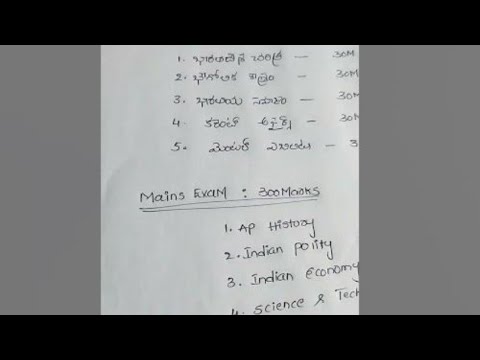 1. భారతదేశ చరిత్ర — 30M
2. భౌగోళిక శాస్త్రం — 30M
3. భారతీయ సమాజం — 30M
4. కరెంట్ అఫైర్స్ — 30M
5. మెంటల్ ఎబిలిటీ — 3
Mains Exam : 300Marks
1. AP History
2. Indian polity
3. Indian economy
4. Science & Tech